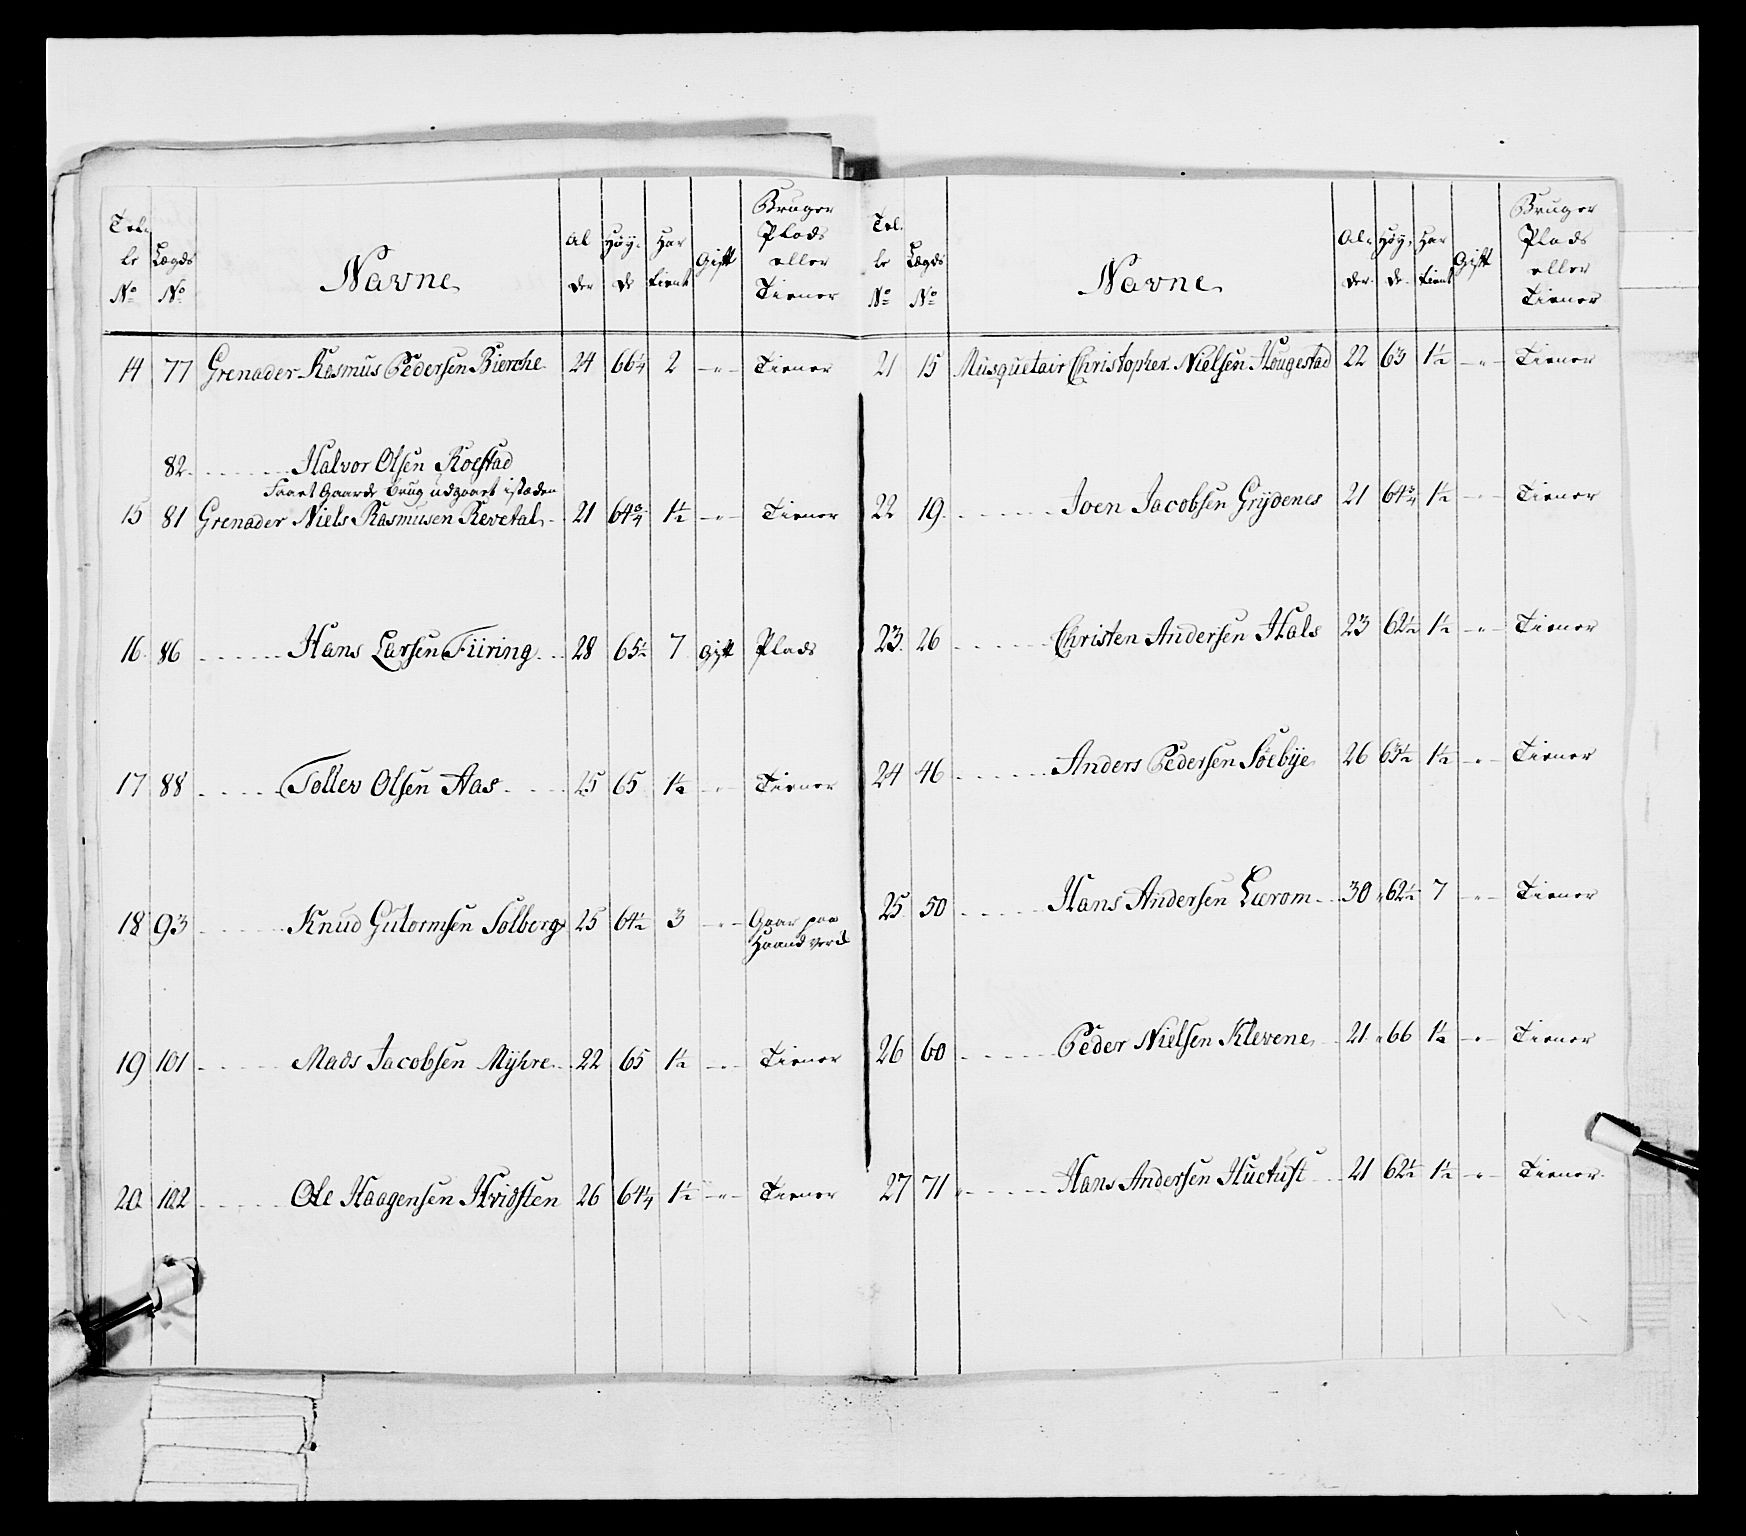 Tel- le No | Lægds No | Navne | Al der | Høy- de | Har tient | Gift | Bruger Plads eller Tiener
14 77 Grenader Rasmus Pedersen Bierche 24 66¼ 2 -"- Tiener
82 Halvor Olsen Roestad
Faaet Gaards brug udgaaet istæden
15 81 Grenader Niels Rasmusen Revetal 21 64¾ 1½ -"- Tiener
16 86 Hans Larsen Fiiring 28 65½ 7 Gift Plads
17 88 Tollev Olsen Aas 25 65 1½ -"- Tiener
18 93 Knud Gutormsen Solberg 25 64½ 3 -"- Gaar paa
Haandverk
19 101 Mads Jacobsen Myhre 22 65 1½ -"- Tiener
20 102 Ole Haagensen Hvidsten 26 64¼ 1½ -"- Tiener
Tel- le No | Lægds No | Navne | Al- der | Høy- de | Har tient | Gift | Bruger Plads eller Tiener
21 15 Musquetair Christopher Nielsen Hougestad 22 63 1½ -"- Tiener
22 19 Joen Jacobsen Grydenes 21 64¾ 1½ -"- Tiener
23 26 Christen Andersen Hals 23 62½ 1½ -"- Tiener
24 46 Anders Pedersen Søebye 26 63½ 1½ -"- Tiener
25 50 Hans Andersen Lærom 30 62½ 7 -"- Tiener
26 60 Peder Nielsen Klevene 21 66 1½ -"- Tiener
27 71 Hans Andersen Huetust 21 62½ 1½ -"- Tiener